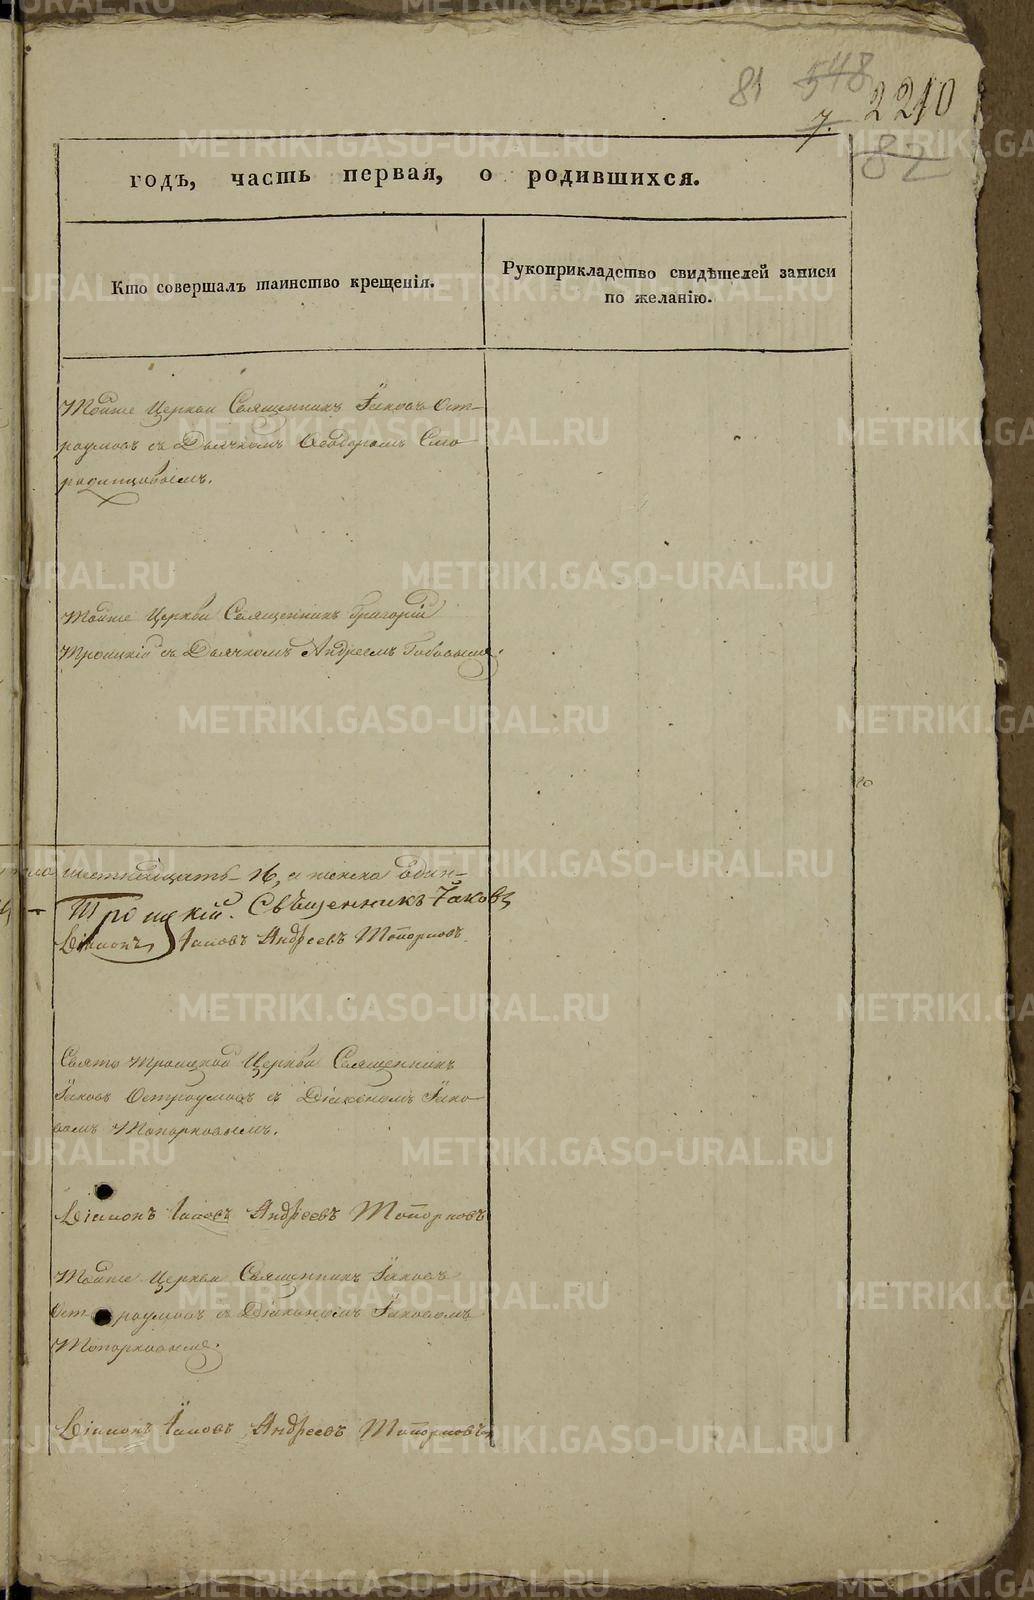 81 548 2210
7. 82
годъ, часть первая, о родившихся.
Кто совершалъ таинство крещенія.
Рукоприкладство свидѣтелей записи
по желанію.
Тойже Церкви Священникъ Іаковъ Ост-
роумовъ съ Дьячкомъ Ѳеодоромъ Смо
родинцовымъ.
Тойже Церкви Священникъ Григорій
Троицкій съ Дьячкомъ Андреемъ
шестнадцать 16, а женска один-
Троицкій. Священникъ Іаковъ
Діаконъ Іаковъ Андреевъ Топорковъ
Свято Троицкой Церкви Священникъ
Іаковъ Остроумовъ съ Діакономъ Іако
вомъ Топорковымъ.
Діаконъ Іаковъ Андреевъ Топорковъ
Тойже Церкви Священникъ Іаковъ
Остроумовъ съ Діакономъ Іаковомъ
Топорковымъ.
Діаконъ Іаковъ Андреевъ Топорковъ
METRIKI.GASO-URAL.RU